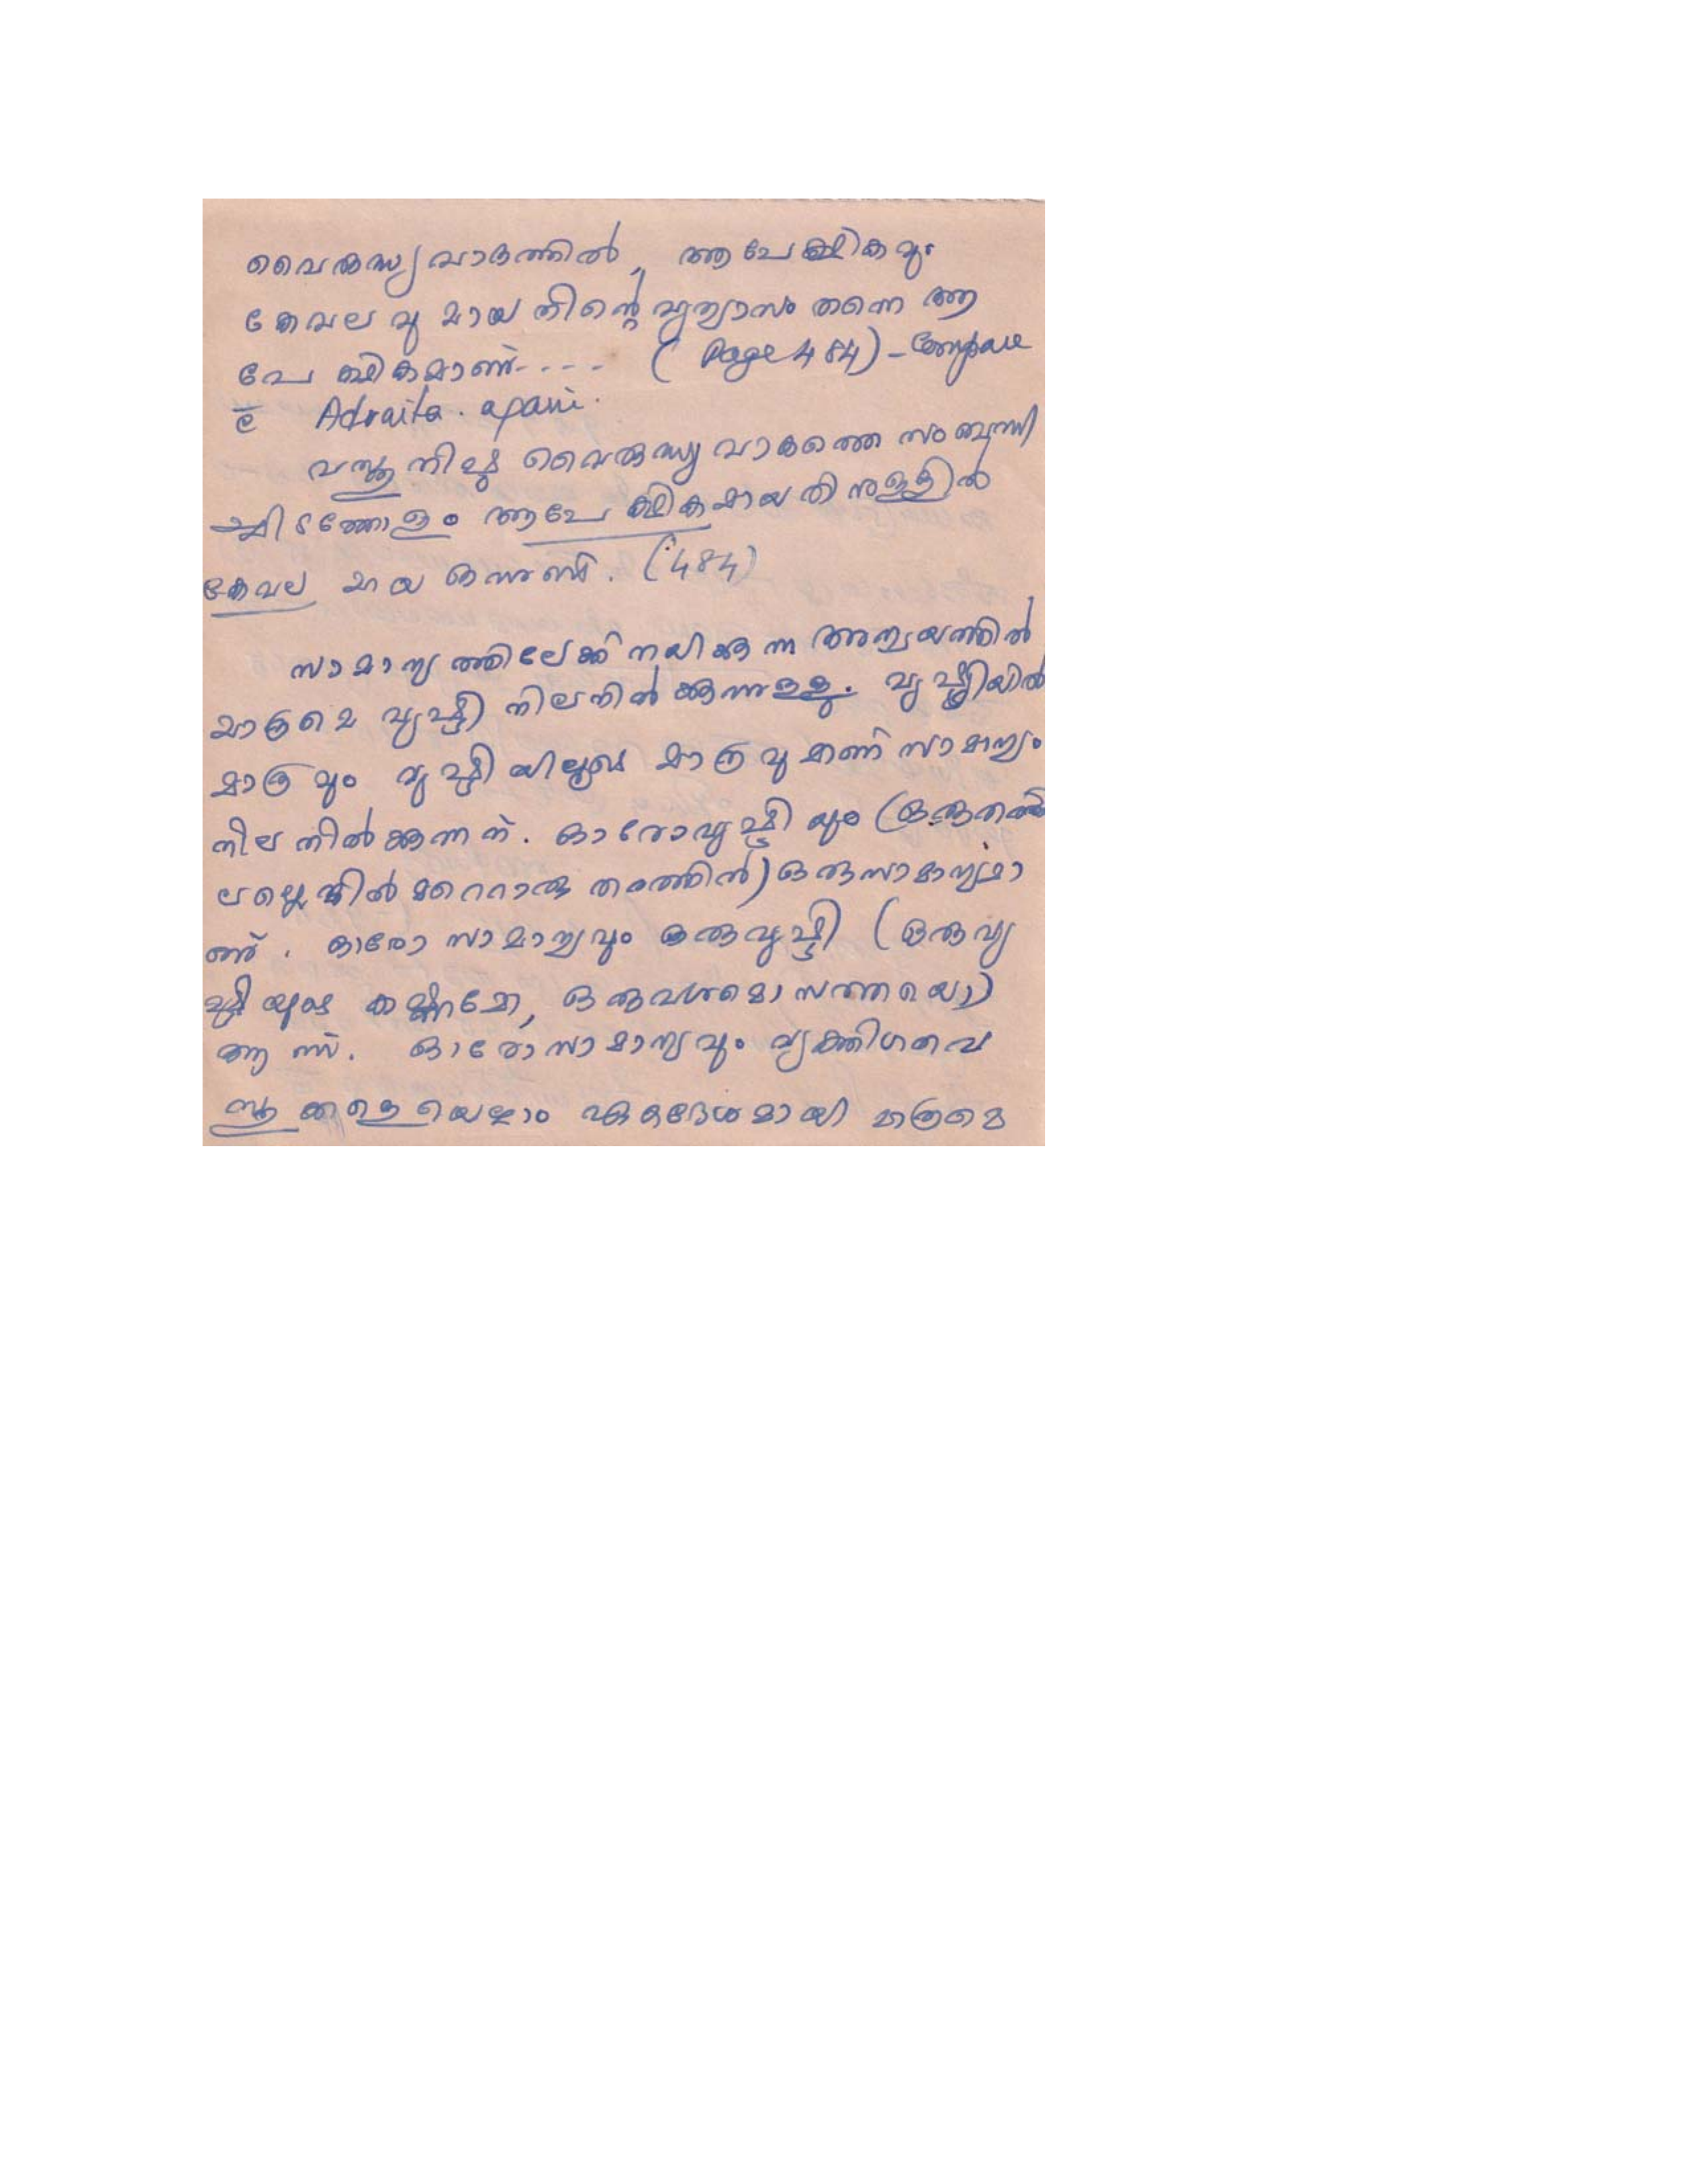 വൈരുദ്ധ്യവാദത്തിൽ, ആപേക്ഷികവും
കേവലവുമായതിന്റെ വ്യത്യാസം തന്നെ ആ
പേക്ഷികമാണ്.... (Page 484) - Compare
c̄ Advaita.
വസ്തുനിഷ്ഠ വൈരുദ്ധ്യവാദത്തെ സംബന്ധി
ച്ചിടത്തോളം ആപേക്ഷികമായതിനുള്ളിൽ
കേവലമായ ഒന്നുണ്ട്. (484)
സാമാന്യത്തിലേക്ക് നയിക്കുന്ന അന്വയത്തിൽ
മാത്രമെ വ്യഷ്ടി നിലനിൽക്കുന്നുള്ളു. വ്യഷ്ടിയിൽ
മാത്രവും വ്യഷ്ടിയിലൂടെ മാത്രവുമാണ് സാമാന്യം
നിലനിൽക്കുന്നത്. ഓരോവ്യഷ്ടിയും (ഒരുതരത്തി
ലല്ലെങ്കിൽ മറെറാരു തരത്തിൽ) ഒരുസാമാന്യമാ
ണ്. ഓരോ സാമാന്യവും ഒരുവ്യഷ്ടി (ഒരുവ്യ
ഷ്ടിയുടെ കഷ്ണമോ, ഒരുവശമൊ സത്തയൊ)
ആണ്. ഓരോസാമാന്യവും വ്യക്തിഗതവ
സ്തുക്കളെയെല്ലാം ഏകദേശമായി മാത്രമെ